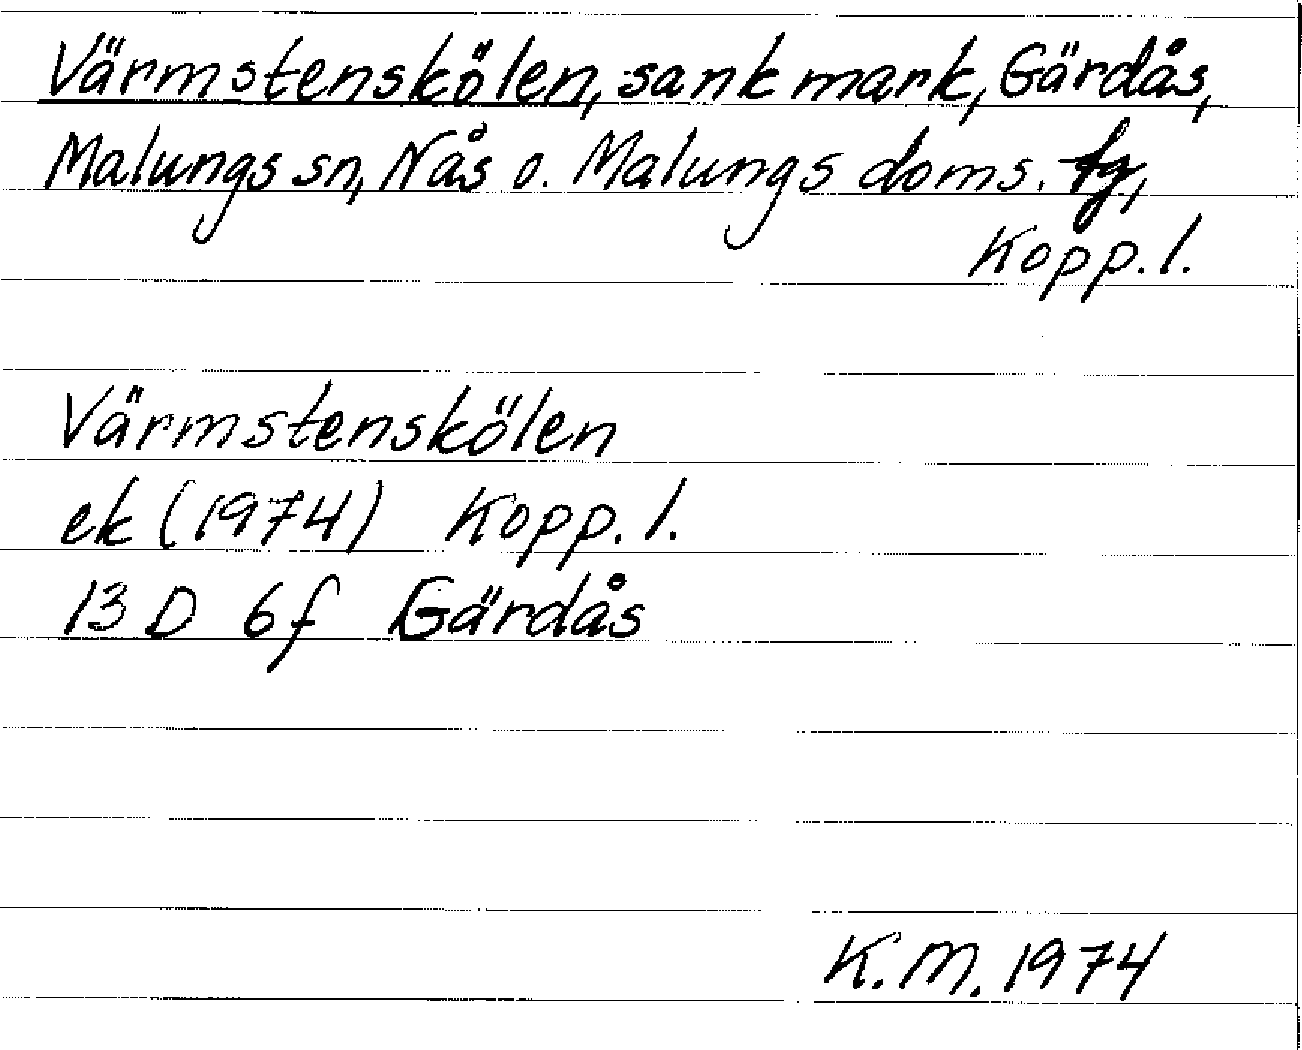 Värmstenskölen, sank mark, Gärdås,
Malungs sn, Nås o. Malungs doms. fg,
Kopp. l.
Värmstenskölen
ek (1974) Kopp. l.
13 D 6f Gärdås
K.M. 1974